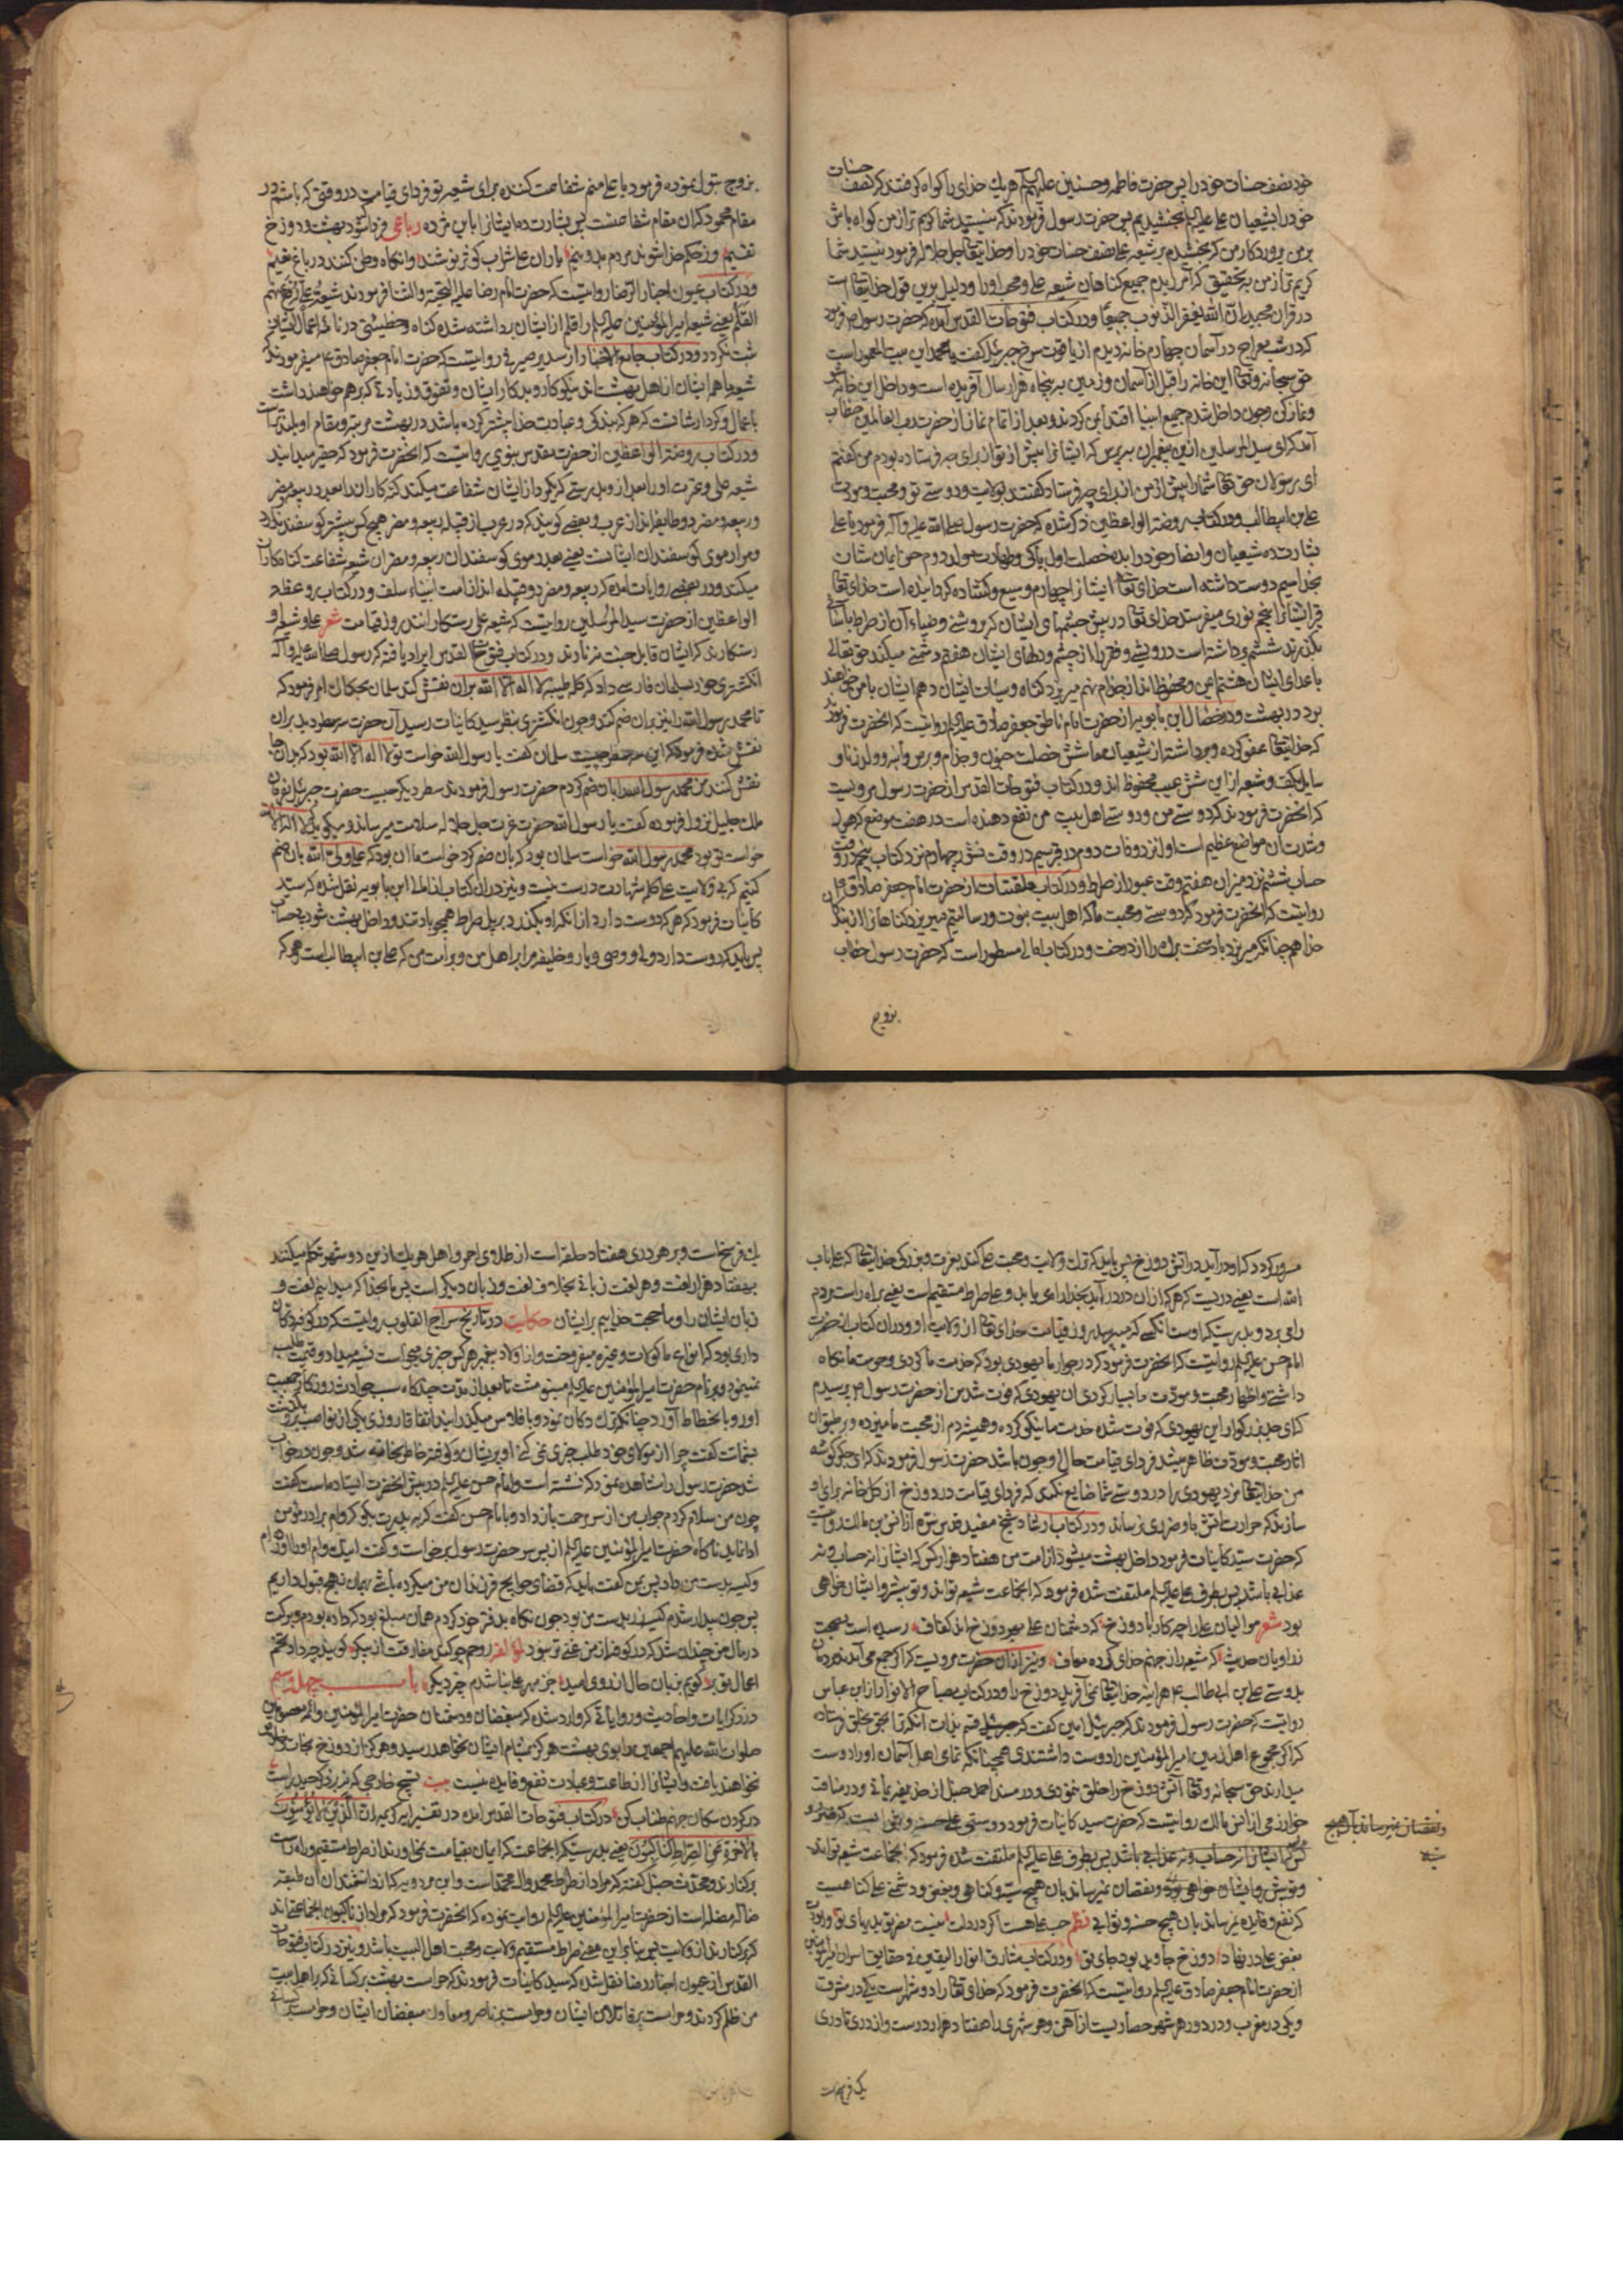 خود نصف حسنات خود را پس حضرت فاطمه و حسنین علیهم هر یك خدای را گواه گرفتند که نصف حسنات
خود را بشیعیان علی علیه السلم بخشیدیم پس حضرت رسول فرمودند که نیستید شما کریم تر از من گواه باش
بر من پروردگار من که بخشیدم بر شیعه علی نصف حسنات خود را و خدایتعالی جل جلاله فرمود نیستید شما
کریم تر از من بتحقیق که آمرزیدم جمیع گناهان شیعه علی و محبان او را و دلیل برین قول خدایتعالی است
در قرآن مجید ان الله یغفر الذنوب جمیعا و در کتاب فتوحات القدس آمده که حضرت رسول فرمود
که در شب معراج در آسمان چهارم خانه دیدم از یاقوت سرخ جبرئیل گفت یا محمد این بیت المعمور است
حق سبحانه و تعالی این خانه را قبل از آسمان و زمین به پنجاه هزار سال آفریده است داخل این خانه شو
و نماز کن و چون داخل شدم جمیع انبیا اقتدا بمن کردند و بعد از اتمام نماز از حضرت رب العالمین خطاب
آمد که ای سید المرسلین ازین پیغمبران بپرس که ایشانرا پیش از تو از برای چه فرستاده بودم من گفتم
ای رسولان حق تعالی شما را پیش از من از برای چه فرستاد گفتند بولایت و دوستی تو و محبت و مودت
علی بن ابیطالب و در کتاب روضة الواعظین ذکر شده که حضرت رسول صلی الله علیه و آله فرمود یا علی
بشارت ده شیعیان و انصار خود را بده خصلت اول پاکی و طهارت مولد دوم حق ایمان ایشان
قبر ایشانرا پنجم نوری میفرستد خدای تعالی در پیش چشمهای ایشان که روشنی و ضیاء آن از صراط بآسانی
بگذرند ششم برداشته است درویشی و فقر را از چشم و دلهای ایشان هفتم دشمنی میکند حق تعالی
با اعدای ایشان هشتم ایمن و محفوظ اند از جذام نهم میریزد گناه و سیئات ایشان دهم ایشان با من خواهند
بود در بهشت و در خصال ابن بابویه از حضرت امام ناطق جعفر صادق علیه السلم روایتست که آنحضرت فرمود
که خدایتعالی عفو کرده و برداشته از شیعیان ما شش خصلت جنون و جذام و برص و ابنه و ولد زنا و
سایل بکف و شیعه از این شش عیب محفوظ اند و در کتاب فتوحات القدس از حضرت رسول مرویست
که آنحضرت فرمودند که دوستی من و دوستی اهل بیت من نفع دهنده است در هفت موضع که هول
و شدت آن مواضع عظیم است اول نزد وفات دوم در قبر سیم در وقت نشور چهارم نزد کتاب پنجم در وقت
حساب ششم نزد میزان هفتم وقت عبور از صراط و در کتاب ملتقتات از حضرت امام جعفر صادق
روایتست که آنحضرت فرمود که دوستی و محبت ما که اهل بیت نبوت و رسالتیم میریزد گناهانرا از بندگان
خدا همچنانکه میریزد باد سخت برگ را از درخت و در کتاب امالی مسطور است که حضرت رسول خطاب
بزوج
بزوج بتول نموده فرمود یا علی منم شفاعت کننده برای شیعه تو فردای قیامت در وقتی که باشم در
مقام محمود که آن مقام شفاعتست پس بشارت ده ایشانرا باین مژده رباعی فردا که شود بهشت و دوزخ
تقسیم وز حکم خدا شوند مردم بدو نیم یاران علی شراب کوثر نوشند وانگاه وطن کنند در باغ نعیم
و در کتاب عیون اخبار الرضا روایتست که حضرت امام رضا علیه التحیة والثنا فرمودند شیعة علی رفع عنهم
القلم یعنی شیعه امیر المؤمنین علیه السلم را قلم از ایشان برداشته شده گناه و خطیئتی در نامه اعمال ایشان
ثبت نگردد و در کتاب جامع الاخبار از سدیر صیرفی روایتست که حضرت امام جعفر صادق میفرمودند
شیعه ما همه ایشان از اهل بهشت اند نیکوکار و بدکار ایشان و تفوق و زیادتی که بر هم خواهند داشت
باعمال و کردار شانست که هر که بندگی و عبادت خدا بیشتر کرده باشد در بهشت مرتبه و مقام او بلندتر است
و در کتاب روضة الواعظین از حضرت مقدس نبوی روایتست که آنحضرت فرمود که حقیر میدانید
شیعه علی و عترت او را بعد از وی بدرستی که یکمرد از ایشان شفاعت میکند گنه کاران را بعدد ربیعه و مضر
و ربیعه و مضر دو طایفه اند از عرب و بعضی گویند که در عرب از قبیله ربیعه و مضر هیچکس بیشتر گوسفند ندارد
و مراد موی گوسفندان ایشانست یعنی بعدد موی گوسفندان ربیعه و مضر آن شیعه شفاعت گناهکاران
میکند و در بعضی روایات آمده که ربیعه و مضر دو قبیله اند از امت انبیاء سلف و در کتاب روضة
الواعظین از حضرت سید المرسلین روایتست که شیعه علی رستگارانند روز قیامت شعر علی و شیعه او
رستگارند که ایشان قابل جنت نه نارند و در کتاب فتوحات القدس ایراد یافته که رسول صلی الله علیه و آله
انگشتری خود بسلمان فارسی داد که کلمه طیبه لا اله الا الله بر آن نقش کند سلمان بحکاک امر فرمود که
تا محمد رسول الله را نیز بر آن ضم کند و چون انگشتری بنظر سید کاینات رسید آن حضرت سه سطر دید بر آن
نقش شده فرمود که این سه سطر چیست سلمان گفت یا رسول الله خواست تو لا اله الا الله بود که بر آن
نقش کنند من محمد رسول الله بآن ضم کردم حضرت رسول فرمودند سطر دیگر چیست حضرت جبرئیل بفرمان
ملك جلیل نزول فرموده گفت یا رسول الله حضرت عزت جل جلاله سلامت میرساند و میگوید که لا اله الا الله
خواست تو بود محمد رسول الله خواست سلمان بود که بآن ضم کرد خواست ما آن بود که علی ولی الله بآن ضم
کنیم که بی ولایت علی کلمه شهادت درست نیست و نیز در آن کتاب از امالی ابن بابویه نقل شده که سید
کاینات فرمود که هر که دوست دارد از آنکه او بگذرد بر پل صراط همچو باد تند و داخل بهشت شود بیحساب
پس باید که دوست دارد ولی و وصی و یار و خلیفه مرا بر اهل من و بر امت من که علی بن ابیطالب است و هر که
مسرور گردد که او در آید در آتش دوزخ پس باید که ترك ولایت و محبت علی کند بعزت و بزرگی خدایتعالی که علی باب
الله است یعنی دریست که هر که از آن در در آید بخدا راه می یابد و علی صراط مستقیم است یعنی براه راست مردم
را می برد و بدرستیکه اوست آنکسی که میپرسد روز قیامت خدای تعالی از ولایت او و در آن کتاب از حضرت
امام حسن علیه السلم روایتست که آنحضرت فرمود که در جوار ما یهودی بود که خدمت ما کردی و حرمت ما نگاه
داشتی و اظهار محبت و مودت ما بسیار کردی آن یهودی که فوت شد من از حضرت رسول پرسیدم
که ای جد بزرگوار این یهودی که فوت شده خدمت ما نیکو کرده و همیشه دم از محبت ما میزده و بر طبق آن
آثار محبت و مودت ظاهر میشد فردای قیامت حال او چون باشد حضرت رسول فرمودند که ای جگر گوشه
من خدایتعالی مزد یهودی را در دوستی شما ضایع نکند که فردای قیامت در دوزخ از گل خانه برای او
سازند که حرارت آتش باو ضرری نرساند و در کتاب ارشاد شیخ مفید قدس سره از انس بن مالك روایتست
که حضرت سید کاینات فرمود داخل بهشت میشود از امت من هفتاد هزار کس که ایشانرا نه حساب و نه
عذابی باشد پس بطرف علی علیه السلم ملتفت شده فرمود که آنجماعت شیعه تواند و تو پیشرو ایشان خواهی
بود شعر موالیان علی را چکار با دوزخ که دشمنان علی بهر دوزخ اند کفاف رسیده است بصحت
ز راویان حدیث که شیعه را ز جهنم خدای کرده معاف و نیز از آن حضرت مرویست که اگر جمع می آمدند مردمان
بدوستی علی بن ابی طالب هر آینه خدایتعالی نمی آفرید دوزخ را و در کتاب مصباح الانوار از ابن عباس
روایتست که حضرت رسول فرمودند که جبرئیل امین گفت که قسم بذات آنکه ترا بحق بخلق فرستاده
که اگر مجموع اهل زمین امیر المؤمنین را دوست داشتندی همچنانکه تمامی اهل آسمان او را دوست
میدارند حق سبحانه و تعالی آتش دوزخ را خلق ننمودی و در مسند احمد حنبل از حذیفه یمانی و در مناقب
خوارزمی از انس مالك روایتست که حضرت سید کاینات فرمود دوستی علی حسنه و ثوابیست که ضرر
کس که ایشانرا نه حساب و نه عذابی باشد پس بطرف علی علیه السلم ملتفت شده فرمود که آنجماعت شیعه تواند
و تو پیش رو ایشان خواهی بود و نقصان نمیرساند بآن هیچ سیئه و گناهی و بغض و دشمنی علی گناهیست
و نقصان نمیرساند بآن هیچ
سیئه
که نفع و فایده نمیرساند بآن هیچ حسنه و ثوابی نظم حب علی هست اگر در دلت نیست مفر تو بدریای
بغض علی در نهاد دوزخ جاوید بود جای تو و در کتاب مشارق انوار الیقین فی حقایق اسرار امیر المؤمنین
از حضرت امام جعفر صادق علیه السلم روایتست که آنحضرت فرمود که خدای تعالی را دو شهر است یکی در مشرق
و یکی در مغرب و در دور هر شهر حصاریست از آهن و هر شهری را هفتاد هزار در است و از دری تا دری
یك فرسخ است
یك فرسخ است و بر هر دری هفتاد حلقه است از طلای احمر و اهل هر یك ازین دو شهر تکلم میکنند
بهفتاد هزار لغت و هر لغت زبانی بخلاف لغت و زبان دیگر است پس ما بخدا که میدانیم لغت و
زبان ایشان را و ما حجت خداییم بر ایشان حکایت در تاریخ سراج القلوب روایتست که در کوفه دکان
داری بود که انواع ماکولات و غیره میفروخت و از اولاد پیغمبر هر کس چیزی میخواست نسیه میداد و قیمت طلب
نمینمود و بنام حضرت امیر المؤمنین علیه السلم مینوشت تا بعد از مدت چندگاه سبب حوادث روزگار
او رو بانحطاط آورد چنانکه ترك دکان نمود و با فلاس میگذرانید اتفاقا روزی یکی از نواصب
بشماتت گفت چرا از مولای خود طلب چیزی نمی کنی او پریشان و کوفته خاطر بخانه شد و چون در خواب
شد حضرت رسول را مشاهده نمود که نشسته است و امام حسن علیه السلم در پیش آنحضرت ایستاده است گفت
چون من سلام کردم جواب من از سر رحمت باز داد و با امام حسن گفت که به پدرت بگو که وام برادر مؤمن
ادا نماید ناگاه حضرت امیر المؤمنین علیه السلم از پس سر حضرت رسول برخواست و گفت اینك وام او را آوردم
و کیسه بدست من داد پس بمن گفت باید که قضای حوایج فرزندان من میکرده باشی بهمان نهج قبول داریم
پس چون بیدار شدم کیسه زر بدست من بود چون نگاه بدفتر خود کردم همان مبلغ بود که داده بودم و برکت
در مال من چندان شد که در کوفه از من غنی تر نبود
اعمال تو بر گویم بزبان حال از روی امید جز مهر علی نباشدم چیز دیگر باب چهل و سیم
در ذکر آیات و احادیث و روایاتی که وارد شده که مبغضان و دشمنان حضرت امیر المؤمنین و ائمه معصومین
صلوات الله علیهم اجمعین را بوی بهشت هرگز بمشام ایشان نخواهد رسید و هرگز از دوزخ نجات
نخواهند یافت و ایشانرا از طاعت و عبادت نفع و فایده نیست بیت
در گردن سگان جهنم طناب کن در کتاب فتوحات القدس آمده در تفسیر آیه کریمه ان الذین لا یؤمنون
بالاخرة عن الصراط لناکبون یعنی بدرستیکه آنجماعت که ایمان بقیامت نمی آورند از صراط مستقیم و راه راست
بر کنارند و محدث حنبل گفته که مراد از صراط محمد و آل محمد است و ابن مردویه که از دانشمندان آن طبقه
ضاله مضله است از حضرت امیر المؤمنین علیه السلم روایت نموده که آنحضرت فرمود که مراد از ناکبون آنجماعت اند
که بر کنارند از ولایت پس بنابراین معنی صراط مستقیم ولایت و محبت اهل البیت باشد و نیز در کتاب فتوحات
القدس از عیون اخبار رضا نقل شده که سید کاینات فرمودند که حرام است بهشت بر کسانی که بر اهل بیت
من ظلم کردند و حرام است بر قاتلان ایشان و حرام است بر ناصر و معاون مبغضان ایشان و حرام است بر کسانی